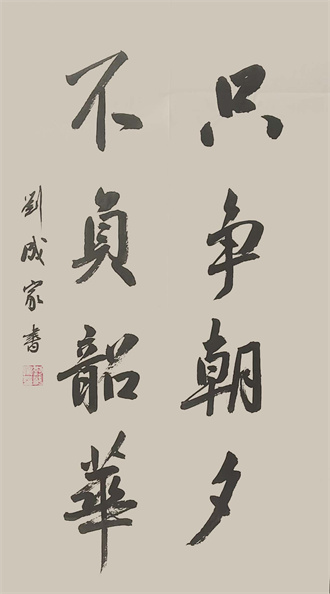 只争朝夕
不負韶華
劉成家書